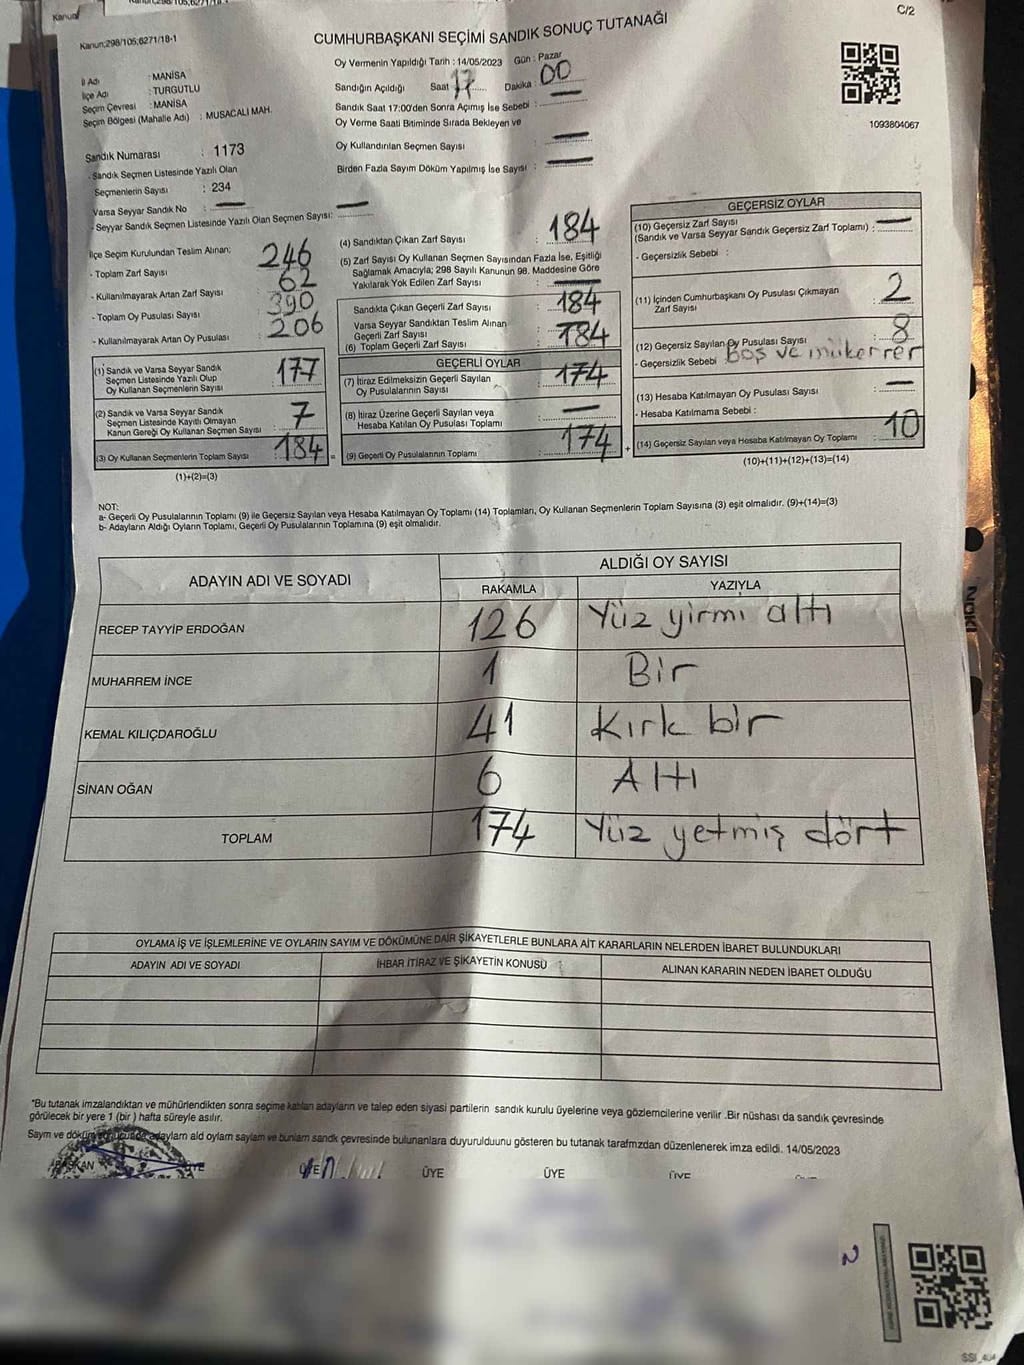 Kanun;298/105;6271/18-1
C/2
CUMHURBAŞKANI SEÇİMİ SANDIK SONUÇ TUTANAĞI
İl Adı : MANİSA
İlçe Adı : TURGUTLU
Seçim Çevresi : MANİSA
Seçim Bölgesi (Mahalle Adı) : MUSACALI MAH.
Sandık Numarası : 1173
- Sandık Seçmen Listesinde Yazılı Olan
Seçmenlerin Sayısı : 234
Varsa Seyyar Sandık No : —
- Seyyar Sandık Seçmen Listesinde Yazılı Olan Seçmen Sayısı: —
Oy Vermenin Yapıldığı Tarih : 14/05/2023 Gün : Pazar
Sandığın Açıldığı Saat 17 Dakika : 00
Sandık Saat 17:00'den Sonra Açımış İse Sebebi : —
Oy Verme Saati Bitiminde Sırada Bekleyen ve
Oy Kullandırılan Seçmen Sayısı : —
Birden Fazla Sayım Döküm Yapılmış İse Sayısı : —
1093804067
İlçe Seçim Kurulundan Teslim Alınan;
- Toplam Zarf Sayısı : 246
- Kullanılmayarak Artan Zarf Sayısı : 62
- Toplam Oy Pusulası Sayısı : 390
- Kullanılmayarak Artan Oy Pusulası : 206
(1) Sandık ve Varsa Seyyar Sandık
Seçmen Listesinde Yazılı Olup
Oy Kullanan Seçmenlerin Sayısı : 177
(2) Sandık ve Varsa Seyyar Sandık
Seçmen Listesinde Kayıtlı Olmayan
Kanun Gereği Oy Kullanan Seçmen Sayısı : 7
(3) Oy Kullanan Seçmenlerin Toplam Sayısı : 184
(1)+(2)=(3)
(4) Sandıktan Çıkan Zarf Sayısı : 184
(5) Zarf Sayısı Oy Kullanan Seçmen Sayısından Fazla İse, Eşitliği
Sağlamak Amacıyla; 298 Sayılı Kanunun 98. Maddesine Göre
Yakılarak Yok Edilen Zarf Sayısı : —
Sandıkta Çıkan Geçerli Zarf Sayısı : 184
Varsa Seyyar Sandıktan Teslim Alınan
Geçerli Zarf Sayısı : —
(6) Toplam Geçerli Zarf Sayısı : 184
GEÇERLİ OYLAR
(7) İtiraz Edilmeksizin Geçerli Sayılan
Oy Pusulalarının Sayısı : 174
(8) İtiraz Üzerine Geçerli Sayılan veya
Hesaba Katılan Oy Pusulası Toplamı : —
(9) Geçerli Oy Pusulalarının Toplamı : 174
GEÇERSİZ OYLAR
(10) Geçersiz Zarf Sayısı
(Sandık ve Varsa Seyyar Sandık Geçersiz Zarf Toplamı) : —
- Geçersizlik Sebebi :
(11) İçinden Cumhurbaşkanı Oy Pusulası Çıkmayan
Zarf Sayısı : 2
(12) Geçersiz Sayılan Oy Pusulası Sayısı : 8
- Geçersizlik Sebebi boş ve mükerrer
(13) Hesaba Katılmayan Oy Pusulası Sayısı : —
- Hesaba Katılmama Sebebi :
(14) Geçersiz Sayılan veya Hesaba Katılmayan Oy Toplamı : 10
(10)+(11)+(12)+(13)=(14)
NOT:
a- Geçerli Oy Pusulalarının Toplamı (9) ile Geçersiz Sayılan veya Hesaba Katılmayan Oy Toplamı (14) Toplamları, Oy Kullanan Seçmenlerin Toplam Sayısına (3) eşit olmalıdır. (9)+(14)=(3)
b- Adayların Aldığı Oyların Toplamı, Geçerli Oy Pusulalarının Toplamına (9) eşit olmalıdır.
ADAYIN ADI VE SOYADI ALDIĞI OY SAYISI
RAKAMLA YAZIYLA
RECEP TAYYİP ERDOĞAN 126 Yüz yirmi altı
MUHARREM İNCE 1 Bir
KEMAL KILIÇDAROĞLU 41 Kırk bir
SİNAN OĞAN 6 Altı
TOPLAM 174 Yüz yetmiş dört
OYLAMA İŞ VE İŞLEMLERİNE VE OYLARIN SAYIM VE DÖKÜMÜNE DAİR ŞİKAYETLERLE BUNLARA AİT KARARLARIN NELERDEN İBARET BULUNDUKLARI
ADAYIN ADI VE SOYADI İHBAR İTİRAZ VE ŞİKAYETİN KONUSU ALINAN KARARIN NEDEN İBARET OLDUĞU
"Bu tutanak imzalandıktan ve mühürlendikten sonra seçime katılan adayların ve talep eden siyasi partilerin sandık kurulu üyelerine veya gözlemcilerine verilir .Bir nüshası da sandık çevresinde
görülecek bir yere 1 (bir ) hafta süreyle asılır.
Sayım ve döküm sonucunda adaylarn ald oylarn saylarn ve bunlarn sandk çevresinde bulunanlara duyurulduunu gösteren bu tutanak tarafmzdan düzenlenerek imza edildi. 14/05/2023
BAŞKAN ÜYE ÜYE ÜYE ÜYE ÜYE
2